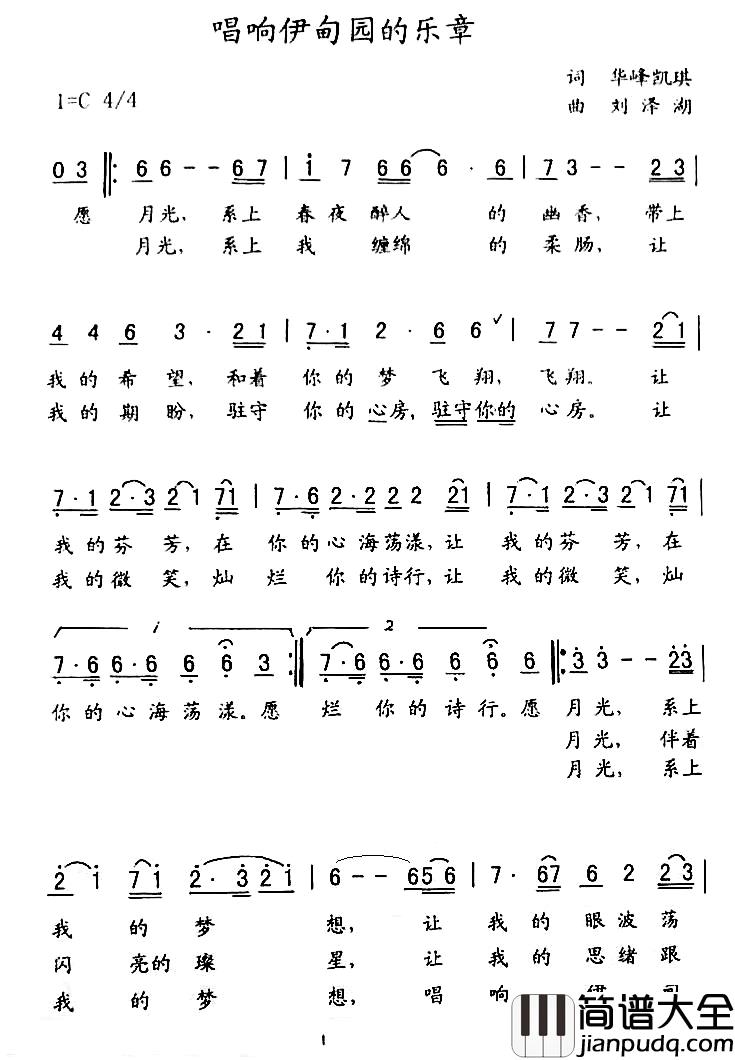 唱响伊甸园的乐章
词 华峰凯琪
1=C 4/4
曲 刘泽湖
0 3 ‖: 6 6 - - 6 7 | i 7 6 6 6 · 6 | 7 3 - - 2 3 |
愿 月光, 系上 春夜醉人 的 幽香, 带上
月光, 系上 我 缠绵 的 柔肠, 让
4 4 6 3 · 2 1 | 7 · 1 2 · 6 6 ✓ | 7 7 - - 2 1 |
我的希望, 和着 你的梦飞翔, 飞翔。 让
我的期盼, 驻守 你的心房, 驻守你的 心房。 让
7 · 1 2 · 3 2 1 7 1 | 7 · 6 2 · 2 2 2 2 1 | 7 · 1 2 · 3 2 1 7 1 |
我的芬芳, 在 你的心海荡漾, 让 我的芬芳, 在
我的微笑, 灿烂 你的诗行, 让 我的微笑, 灿
1 2
7 · 6 6 · 6 6 6 3 :‖ 7 · 6 6 · 6 6 6 6 ‖: 3 3 - - 2 3 |
你的心海荡漾。愿 烂你的诗行。愿 月光, 系上
月光, 伴着
月光, 系上
2 i 7 i 2 · 3 2 i | 6 - - 6 5 6 | 7 · 6 7 6 2 2 3 |
我 的 梦 想, 让 我的眼波荡
闪 亮的 璨 星, 让 我的思绪跟
我 的 梦 想, 唱 响 伊 甸
1
简谱大全
jianpudq.com